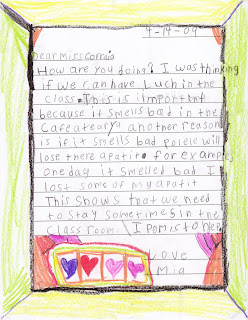 4-14-09
Dear Miss Cornia
How are you doing? I was thinking
if we can have Luch in the
class. This is important
because it smells bad in the
Cafeateary a another reason
is if it smells bad polele will
lose there apatit. for example,
One day it smelled bad I
lost some of my apatit
This shows that we need
to stay sometimes in the
class room. I pomis to help
Love
Mia